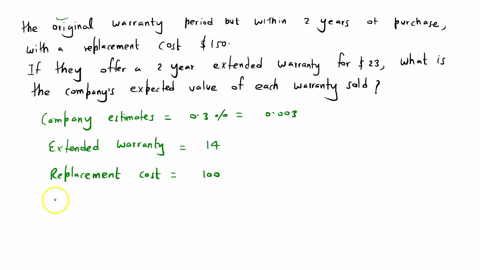 the original warranty period but within 2 years of purchase,
with a replacement cost $150.
If they offer a 2 year extended warranty for $23, what is
the company's expected value of each warranty sold?
Company estimates = 0.3% = 0.003
Extended warranty = 14
Replacement cost = 100